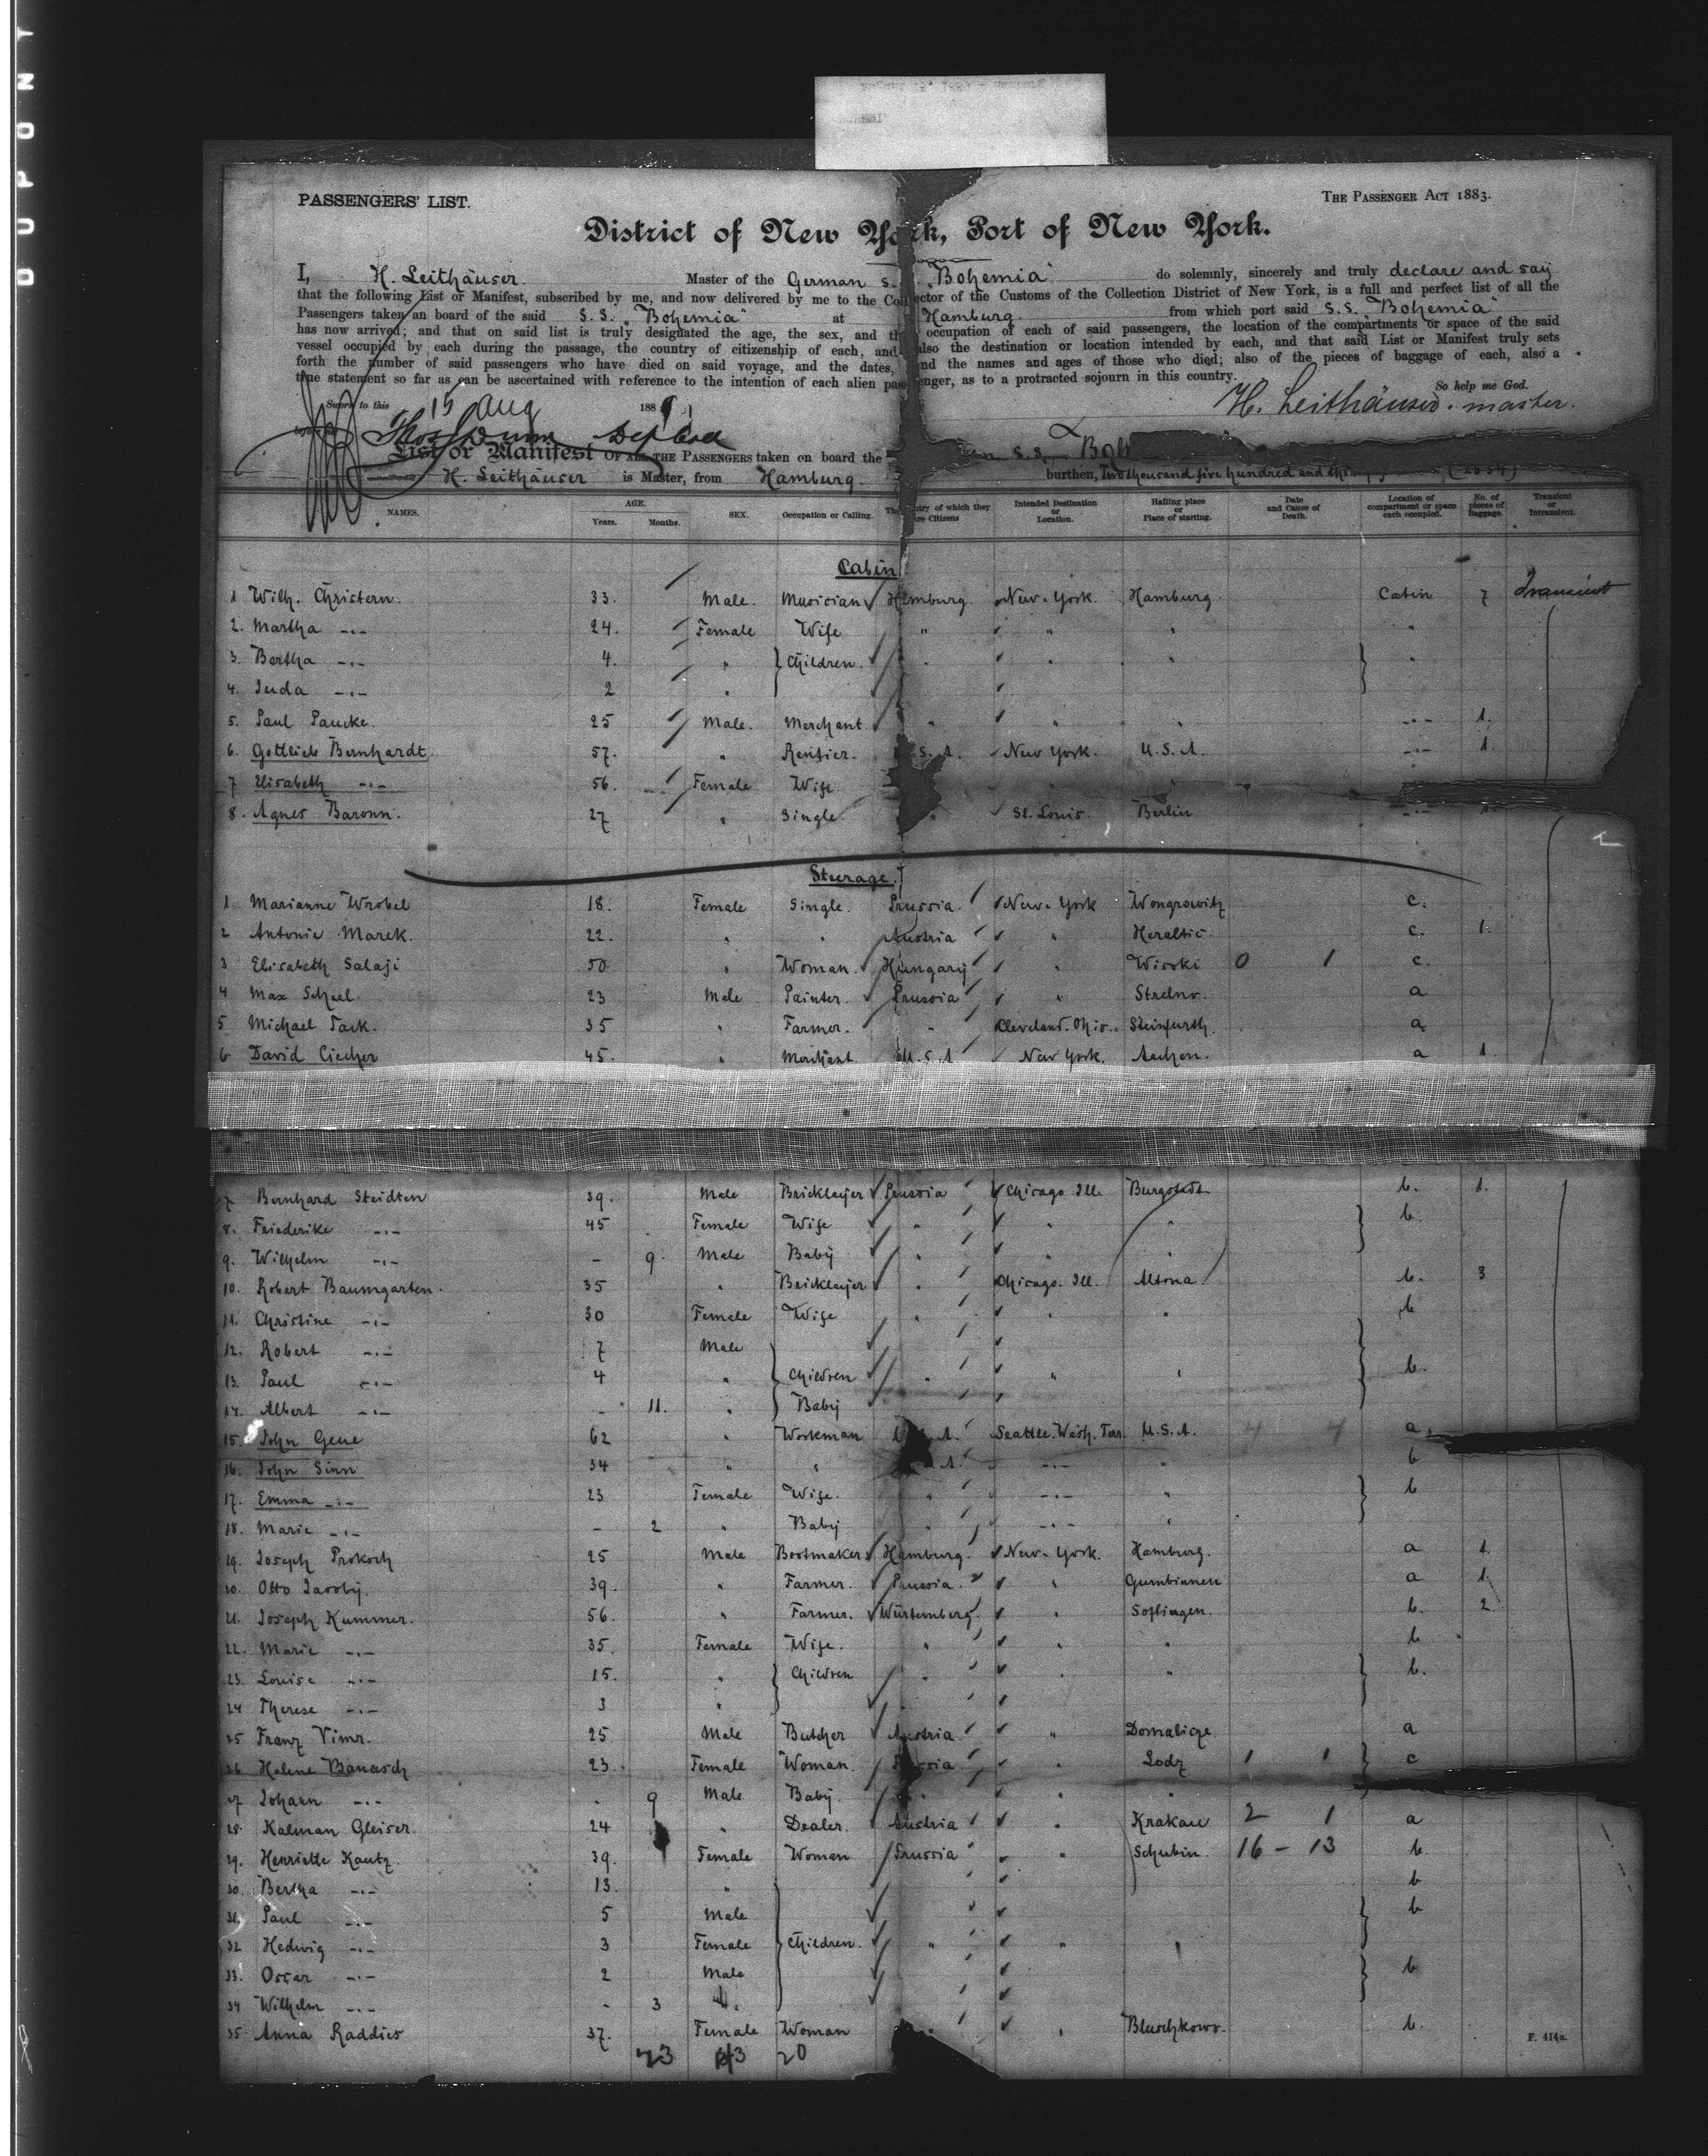 DUPONT
PASSENGERS' LIST.
THE PASSENGER ACT 1883.
District of New York, Port of New York.
I, H. Leithäuser Master of the German S.S. "Bohemia" do solemnly, sincerely and truly declare and say
that the following List or Manifest, subscribed by me, and now delivered by me to the Collector of the Customs of the Collection District of New York, is a full and perfect list of all the
Passengers taken on board of the said S.S. "Bohemia" at Hamburg. from which port said S.S. "Bohemia"
has now arrived; and that on said list is truly designated the age, the sex, and the occupation of each of said passengers, the location of the compartments or space of the said
vessel occupied by each during the passage, the country of citizenship of each, and also the destination or location intended by each, and that said List or Manifest truly sets
forth the number of said passengers who have died on said voyage, and the dates, and the names and ages of those who died; also of the pieces of baggage of each, also a
true statement so far as can be ascertained with reference to the intention of each alien passenger, as to a protracted sojourn in this country.
So help me God.
Sworn to this 15 Aug 188
H. Leithäuser. master.
before me
List or Manifest OF ALL THE PASSENGERS taken on board the S.S. Boh
H. Leithäuser is Master, from Hamburg. burthen, Two thousand five hundred and
NAMES. AGE. Years. Months. SEX. Occupation or Calling. The Country of which they are Citizens Intended Destination or Location. Hailing place or Place of starting. Date and Cause of Death. Location of compartment or space each occupied. No. of pieces of Baggage. Transient or Intransient.
Cabin.
1 Wilh. Christern. 33. Male. Musician Hamburg. New-York. Hamburg. Cabin 7 Transient
2. Martha -"- 24. Female Wife " " " "
3. Bertha -"- 4. " } Children. " " " } "
4. Juda -"- 2 "
5. Paul Paucke. 25 Male. Merchant. " " " -"- 1.
6. Gottlieb Bernhardt. 57. " Rentier. U.S.A. New York. U.S.A. -"- 1.
7 Elisabeth -"- 56. Female Wife
8. Agnes Baronn. 27 " Single. " St. Louis. Berlin -"- 1.
Steerage.
1 Marianne Wrobel 18. Female Single. Prussia. New-York Wongrowitz c.
2 Antonie Marek. 22. " " Austria " Heraltic. c. 1.
3 Elisabeth Salaji 50. " Woman. Hungary " Wisoki 0 1 c.
4 Max Scheel. 23 Male Painter. Prussia " Strelno. a
5 Michael Tack. 35 " Farmer. " Cleveland. Ohio. Steinfurth. a
6 David Ciecher 45. " Merchant. U.S.A. New York. Aachen. a 1.
7 Bernhard Steidten 39. Male Bricklayer Prussia Chicago Ill. Burgstadt b. 1.
8. Friederike -"- 45 Female Wife " " " } b.
9. Wilhelm -"- - 9. Male Baby " " "
10. Robert Baumgarten. 35 " Bricklayer " Chicago. Ill. Altona b. 3
11. Christine -"- 30 Female Wife " " " b
12. Robert -"- 7 Male
13. Paul -"- 4 " } Children " " " } b.
14. Albert -"- - 11. " Baby
15. John Gene 62 " Workman A. Seattle. Wash. Terr. U.S.A. 4 4 a
16. John Sinn 34 " " A. -"- " b
17. Emma -"- 23 Female Wife. " -"- " } b
18. Marie -"- - 2 " Baby " -"- "
19. Joseph Prokoch 25 Male Bootmaker Hamburg. New-York. Hamburg. a 1.
20. Otto Jacoby. 39. " Farmer. Prussia. " Gumbinnen a 1.
21. Joseph Kummer. 56. " Farmer. Würtemberg. " Soflingen. b. 2
22. Marie -"- 35. Female Wife. " " " b
23. Louise -"- 15. " } Children " " " } b.
24 Therese -"- 3 " "
25 Franz Vimr. 25 Male Butcher Austria " Domalicze a
26 Helene Banasch 23. Female Woman. Russia " Lodz 1 1 } c
27 Johann -"- . 9 Male Baby. " " "
28. Kalman Gleiser. 24 " Dealer. Austria " Krakau 2 1 a
29. Henriette Kautz. 39. Female Woman Prussia " Schubin. 16 - 13 b.
30. Bertha -"- 13. " b
31. Paul -"- 5 Male } b
32 Hedwig -"- 3 Female } Children. " " "
33. Oscar -"- 2 Male } b
34 Wilhelm -"- - 3 "
35. Anna Raddies 37. Female Woman " " Bluschkowo. b.
F. 414a.
23 20